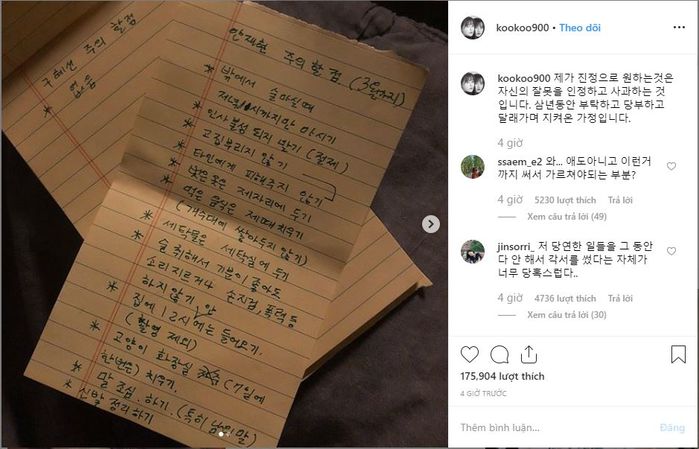 구혜선 주의 할점
없음
안재현 주의 할 점. (3월까지)
* 밖에서 술마실때
시까지만 마시기
* 인사불성 되지 말기 (절제)
* 고집부리지 않기
* 타인에게 피해주지 않기
* 벗은옷은 제자리에 두기
* 먹은 음식은 제때 치우기
(개수대에 쌓아두지 않기)
* 세탁물은 세탁실에 두기
* 술 취해서 기분이 좋아도
소리지르거나 손지검, 폭력 등
하지않기
* 집에 12시 안에는 들어오기.
(촬영 제외)
* 고양이 화장실 (7일에
한번은) 치우기.
* 말 조심. 하기. (특히 남의 말)
* 신발 정리하기
kookoo900 • Theo dõi
kookoo900 제가 진정으로 원하는것은
자신의 잘못을 인정하고 사과하는 것
입니다. 삼년동안 부탁하고 당부하고
달래가며 지켜온 가정입니다.
4 giờ
ssaem_e2 와... 애도아니고 이런거
까지 써서 가르쳐야되는 부분?
4 giờ 5230 lượt thích Trả lời
Xem câu trả lời (49)
jinsorri_ 저 당연한 일들을 그 동안
다 안 해서 각서를 썼다는 자체가
너무 당혹스럽다..
4 giờ 4736 lượt thích Trả lời
Xem câu trả lời (30)
175,904 lượt thích
4 GIỜ TRƯỚC
Thêm bình luận...
Đăng